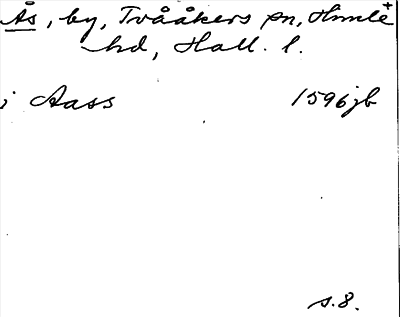 Ås, by, Tvååkers sn, Himle+
hd, Hall. l.
i Aass 1596 jb
s. 8.